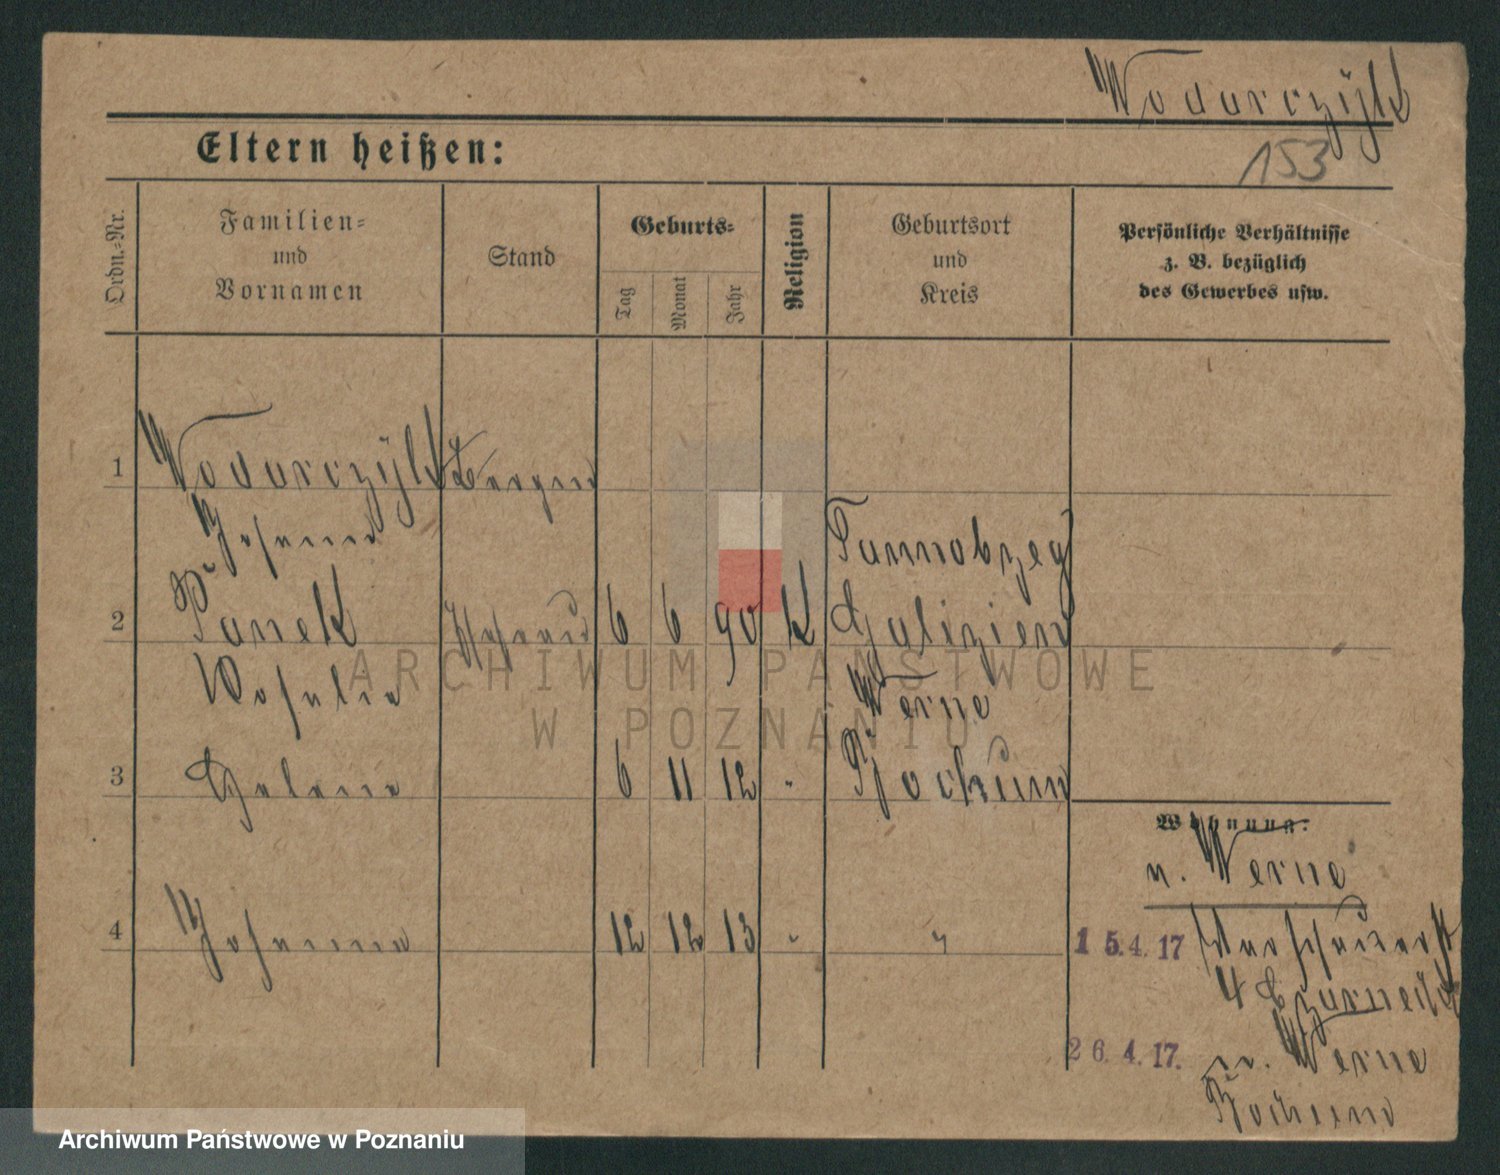 Wodarczÿk
153
Eltern heißen:
Ordn.=Nr.
Familien=
und
Vornamen
Stand
Geburts=
Tag
Monat
Jahr
Religion
Geburtsort
und
Kreis
Persönliche Verhältnisse
z. B. bezüglich
des Gewerbes usw.
1 Wodarczÿk
Johann
Tarnobrzeg
2 Panek Ehefrau 6 6 90 K Galizien
Rosalie Werne
3 Helene 6 11 12 " Bochum
Wohnung:
n. Werne
4 Johanna 12 12 13 " "
15.4.17
4 Czarnecki
26.4.17. n. Werne
Bochum
ARCHIWUM PAŃSTWOWE
W POZNANIU
Archiwum Państwowe w Poznaniu